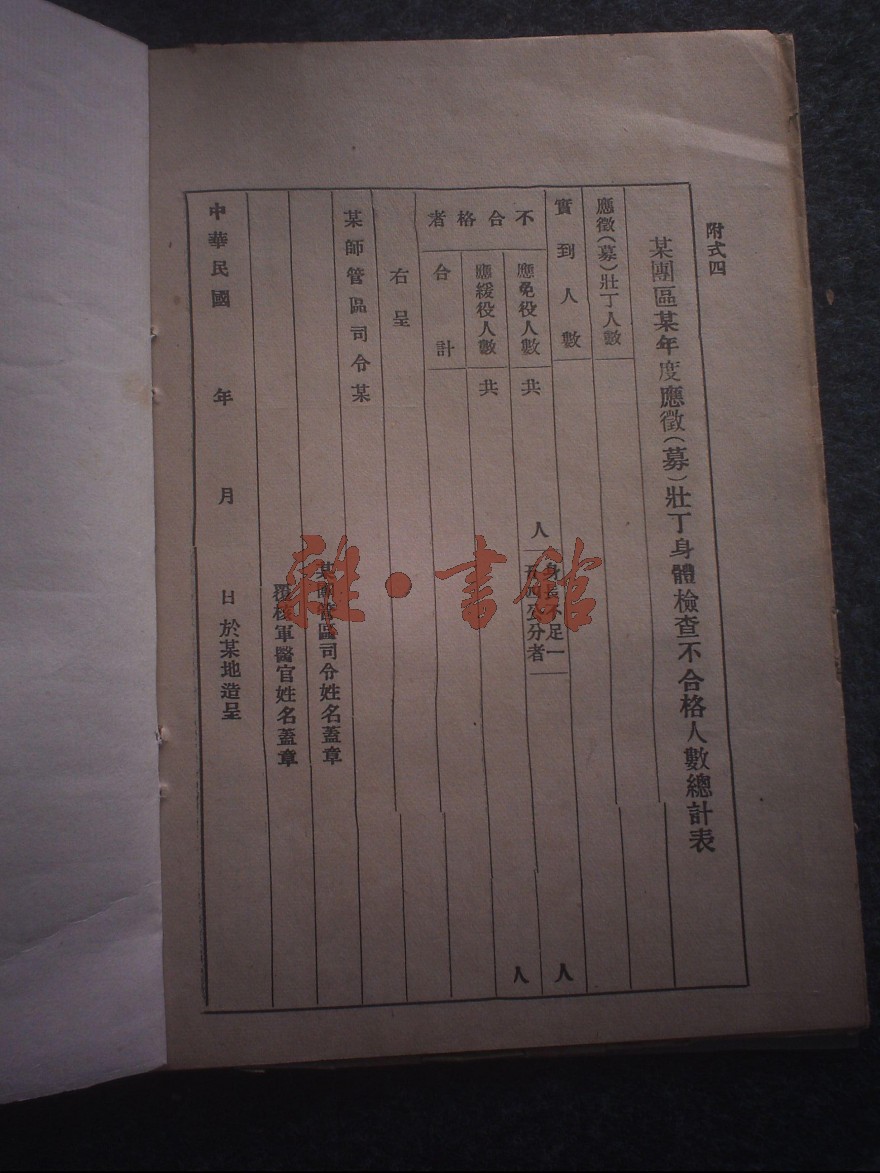 附式四
某團區某年度應徵(募)壯丁身體檢查不合格人數總計表
應徵(募)壯丁人數
實到人數 人
不合格者
應免役人數 共 人 身長不足一
公分者 人
應緩役人數 共
合計
右呈
某師管區司令某
某團管區司令姓名蓋章
覆核軍醫官姓名蓋章
中華民國 年 月 日於某地造呈
雜·書館